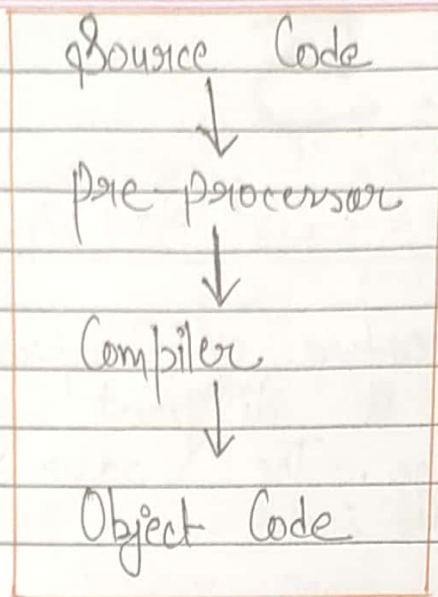 Source Code
Pre-processor
Compiler
Object Code